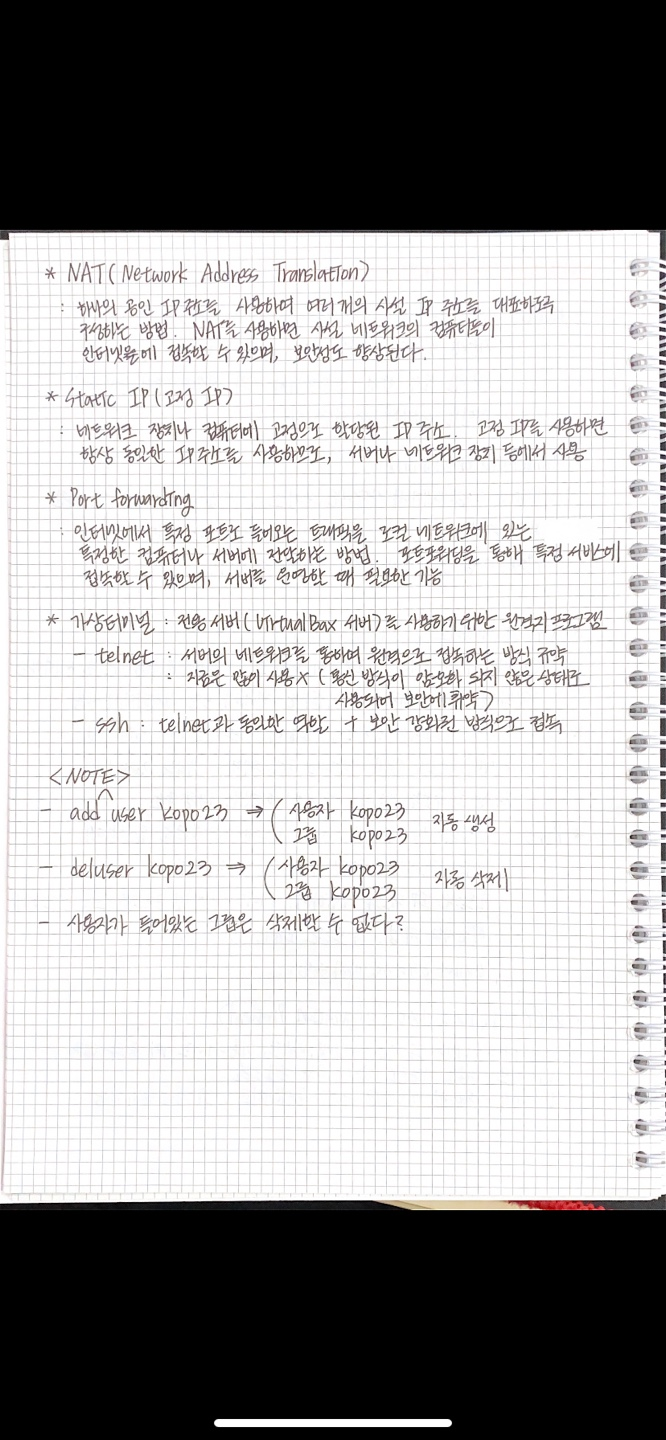 * NAT(Network Address Translation)
: 하나의 공인 IP 주소를 사용하여 여러개의 사설 IP 주소를 대표하도록
구성하는 방법. NAT을 사용하면 사설 네트워크의 컴퓨터들이
인터넷을에 접속할 수 있으며, 보안성도 향상된다.
* Static IP(고정 IP)
: 네트워크 장치나 컴퓨터에 고정으로 할당된 IP 주소. 고정 IP를 사용하면
항상 동일한 IP 주소를 사용하므로, 서버나 네트워크 장치 등에서 사용
* Port forwarding
: 인터넷에서 특정 포트로 들어오는 트래픽을 로컬 네트워크에 있는
특정한 컴퓨터나 서버에 전달하는 방법. 포트포워딩을 통해 특정 서비스에
접속할 수 있으며, 서버를 운영할 때 필요한 기능
* 가상터미널 : 전용 서버(VirtualBox 서버)를 사용하기 위한 원격지 프로그램
- telnet : 서버의 네트워크를 통하여 원격으로 접속하는 방식 규약
: 지금은 많이 사용 X (통신 방식이 암호화 되지 않은 상태로
사용되어 보안에 취약)
- ssh : telnet과 동일한 역할 + 보안 강화된 방식으로 접속
<NOTE>
- add user kopo23 ⇒ ( 사용자 kopo23
그룹 kopo23 자동 생성
- deluser kopo23 ⇒ ( 사용자 kopo23
그룹 kopo23 자동 삭제
- 사용자가 들어있는 그룹은 삭제할 수 없다?